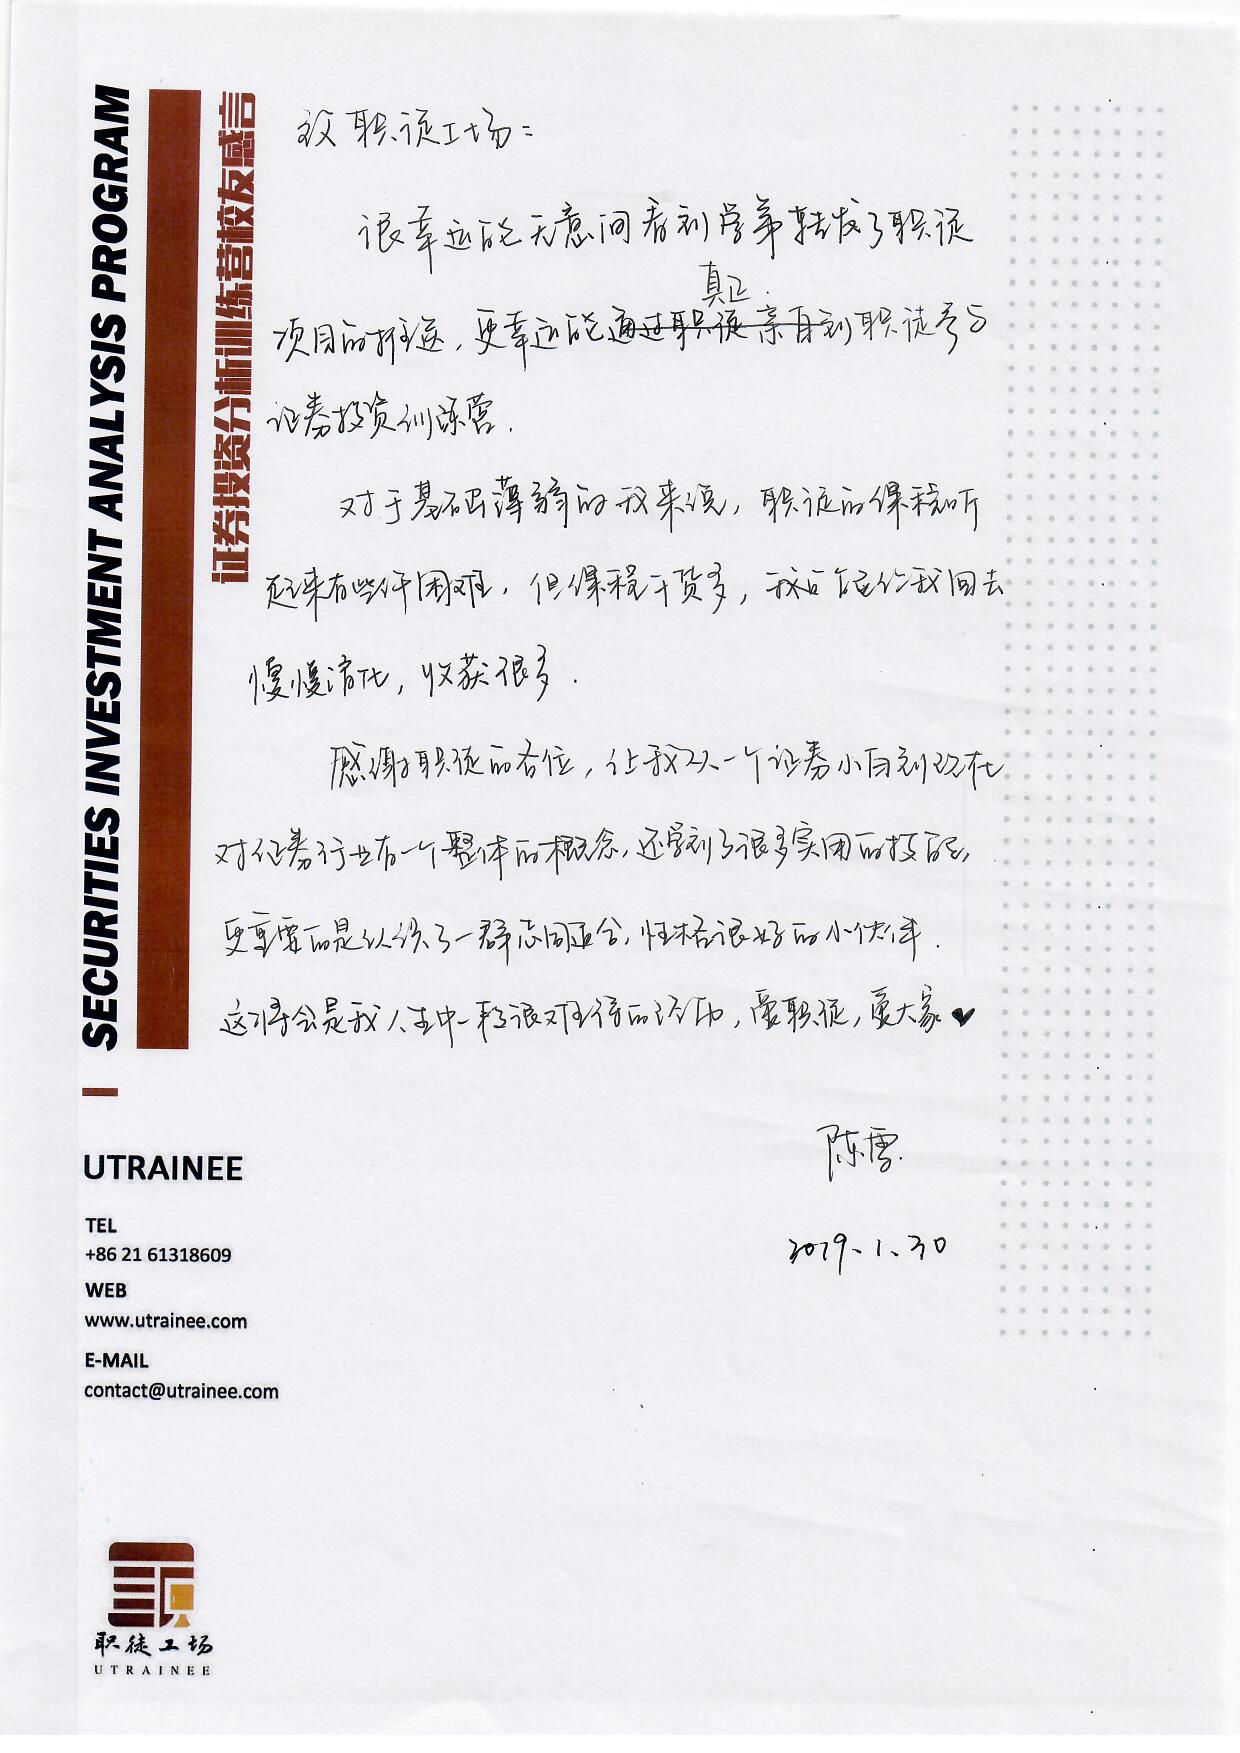 SECURITIES INVESTMENT ANALYSIS PROGRAM
证券投资分析训练营校友感言
致职徒工场：
很幸运能无意间看到学弟转发了职徒
真正
项目的推送，更幸运能通过职徒亲自到职徒参与
证券投资训练营.
对于基础薄弱的我来说，职徒的课程听
起来有些许困难，但课程干货多，我只能给我回去
慢慢消化，收获很多.
感谢职徒的各位，让我从一个证券小白到现在
对证券行业有一个整体的概念,还学到了很多实用的技能,
更重要的是认识了一群志同道合,性格很好的小伙伴.
这将会是我人生中一段很难得的经历，爱职徒，爱大家♥
陈雪.
2019.1.30
UTRAINEE
TEL
+86 21 61318609
WEB
www.utrainee.com
E-MAIL
contact@utrainee.com
职徒工场
UTRAINEE